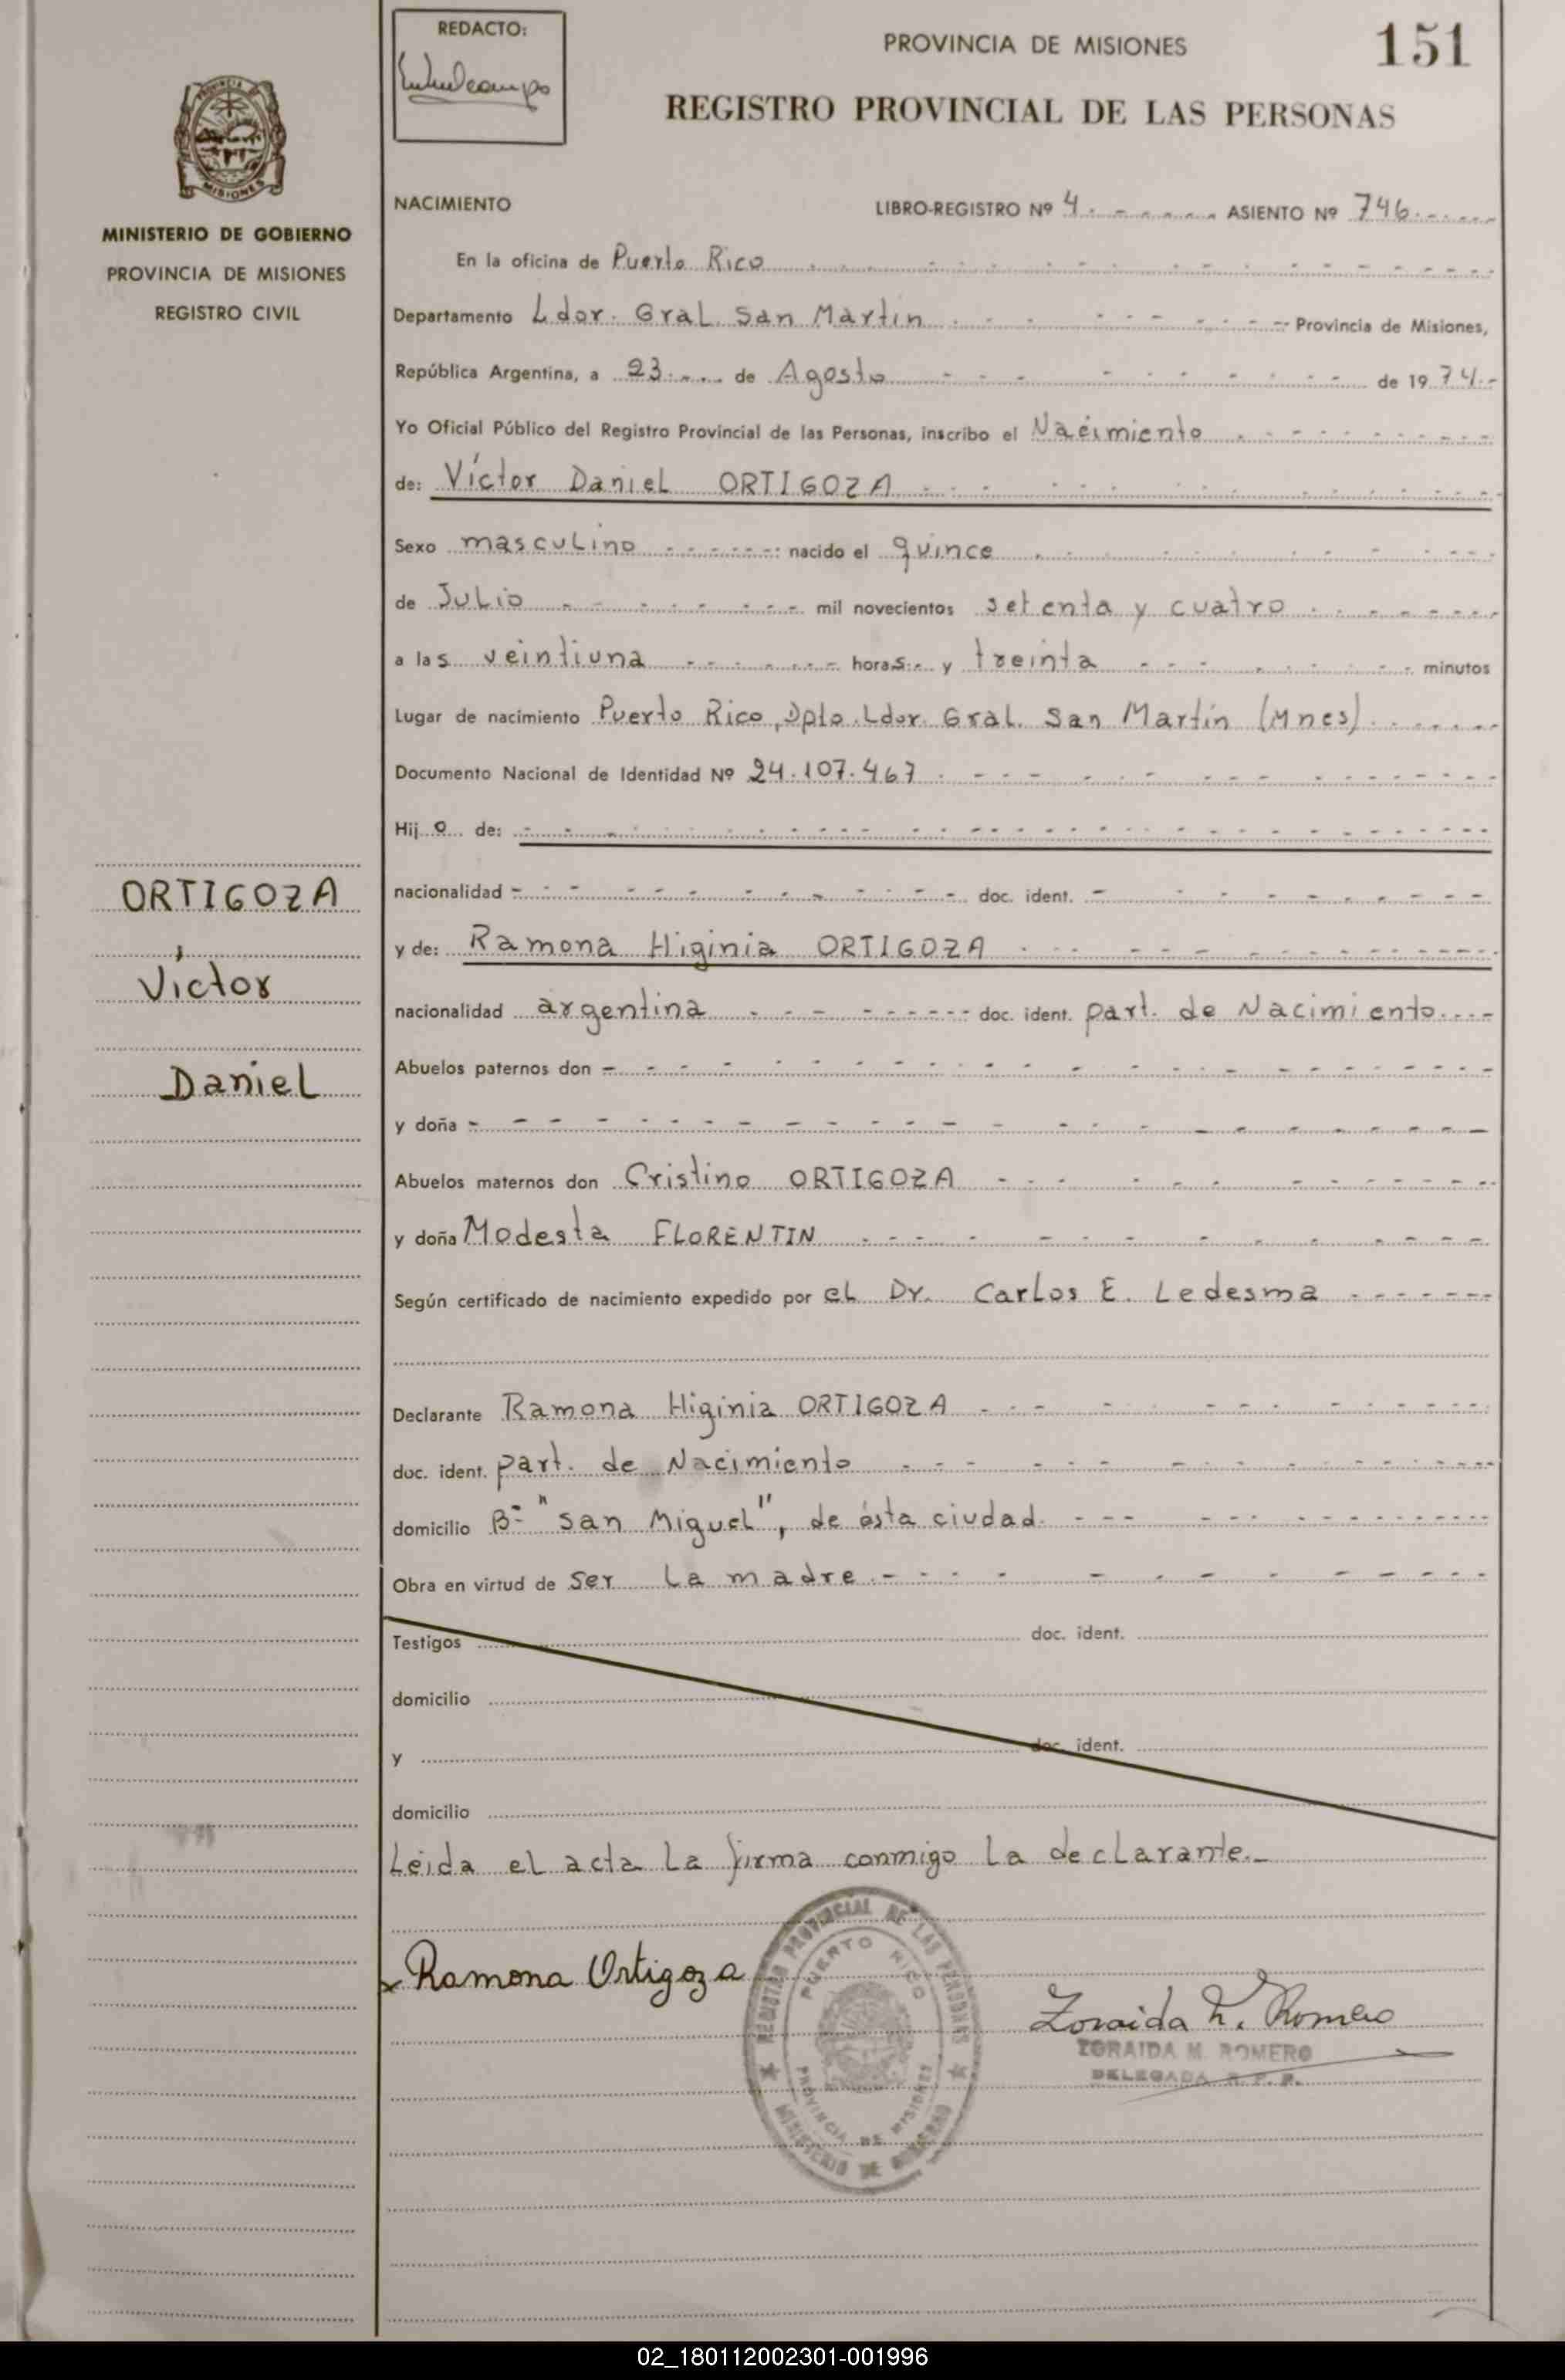 REDACTO:
PROVINCIA DE MISIONES
151
REGISTRO PROVINCIAL DE LAS PERSONAS
MISIONES
MINISTERIO DE GOBIERNO
PROVINCIA DE MISIONES
REGISTRO CIVIL
NACIMIENTO LIBRO-REGISTRO Nº 4. ASIENTO Nº 746.
En la oficina de Puerto Rico
Departamento Ldor. Gral. San Martin Provincia de Misiones,
República Argentina, a 23 de Agosto de 1974.-
Yo Oficial Público del Registro Provincial de las Personas, inscribo el Nacimiento
de: Víctor Daniel ORTIGOZA
Sexo masculino nacido el quince
de Julio mil novecientos setenta y cuatro
a las veintiuna horas y treinta minutos
Lugar de nacimiento Puerto Rico, Dpto. Ldor. Gral. San Martín (Mnes).
Documento Nacional de Identidad Nº 24.107.467
Hijo de:
nacionalidad doc. ident.
y de: Ramona Higinia ORTIGOZA
nacionalidad argentina doc. ident. part. de Nacimiento
Abuelos paternos don
y doña
Abuelos maternos don Cristino ORTIGOZA
y doña Modesta FLORENTIN
Según certificado de nacimiento expedido por el Dr. Carlos E. Ledesma
Declarante Ramona Higinia ORTIGOZA
doc. ident. part. de Nacimiento
domicilio B- "San Miguel", de ésta ciudad.
Obra en virtud de ser la madre.-
Testigos doc. ident.
domicilio
y doc. ident.
domicilio
Leida el acta la firma conmigo la declarante.-
ORTIGOZA
Víctor
Daniel
x Ramona Ortigoza
REGISTRO PROVINCIAL DE LAS PERSONAS
PUERTO RICO
PROVINCIA DE MISIONES
MINISTERIO DE GOBIERNO
Zoraida M. Romero
ZORAIDA M. ROMERO
DELEGADA R. P. P.
02_180112002301-001996